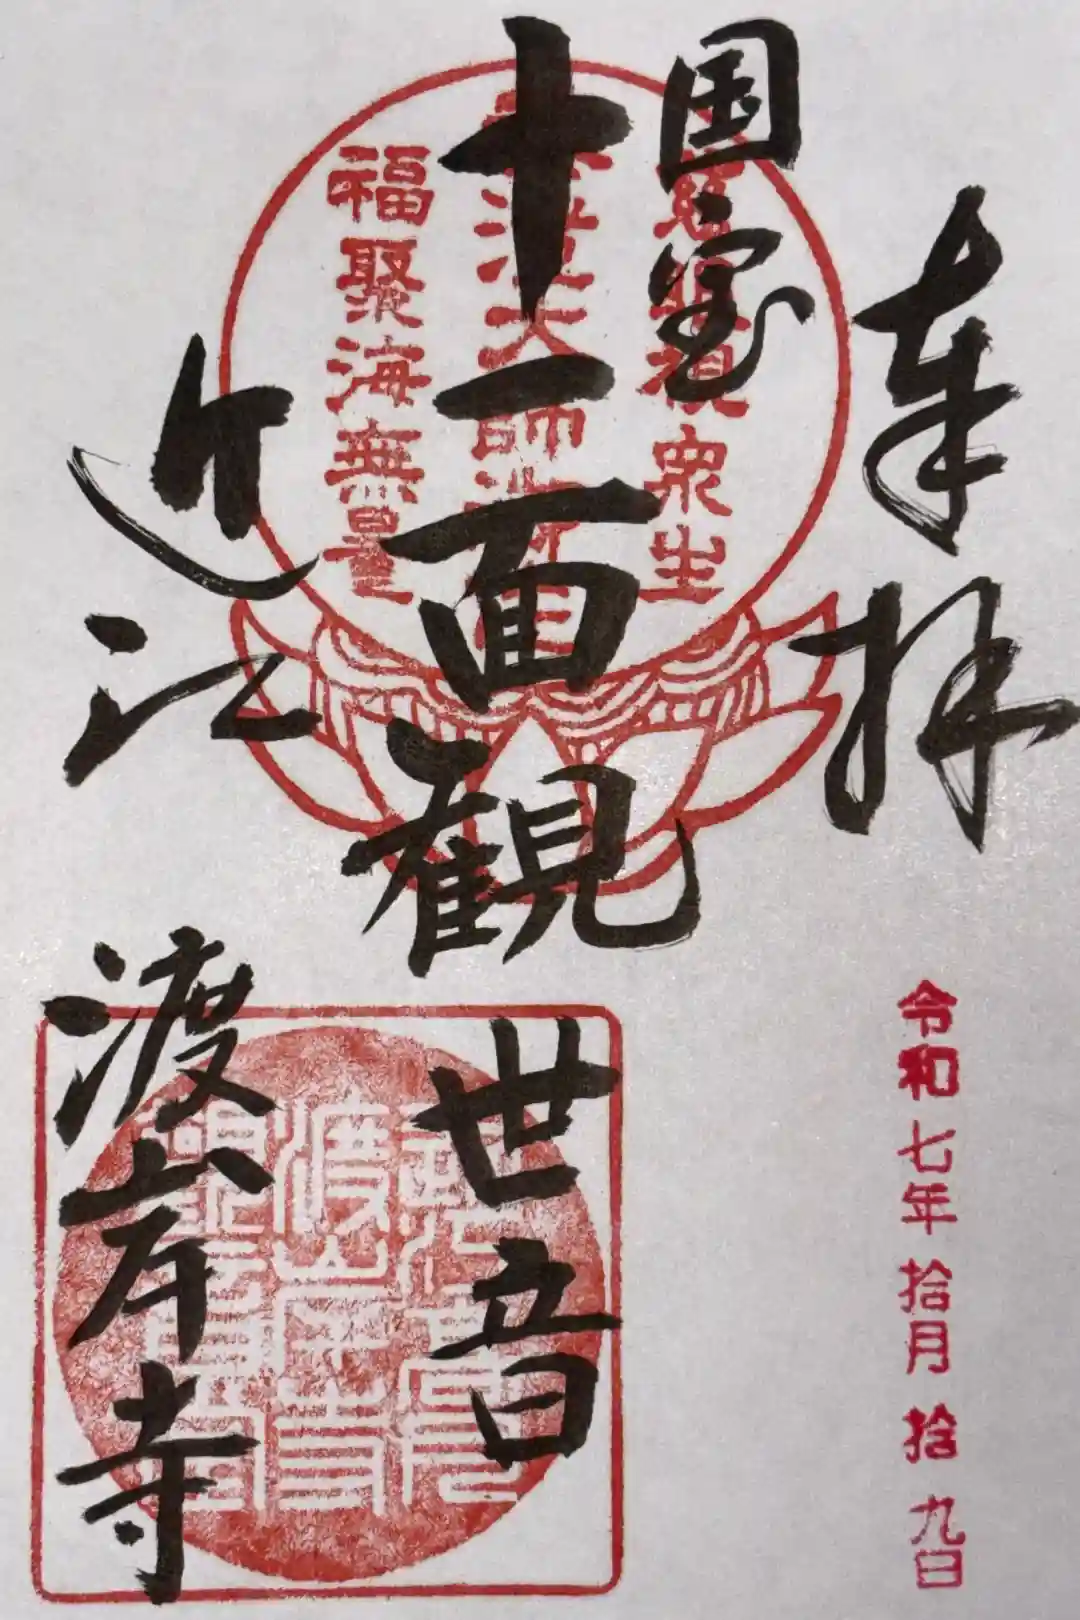 奉拝
国宝
十一面観世音
近江
渡岸寺
衆生
福聚海無量
令和七年拾月拾九日